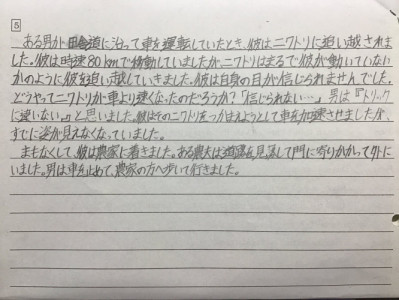 5
ある男が田舎道に沿って車を運転していたとき、彼はニワトリに追い越されま
した。彼は時速80kmで移動していましたが、ニワトリはまるで彼が動いていない
かのように彼を追い越していきました。彼は自身の目が信じられませんでした。
どうやってニワトリが車より速くなったのだろうか?「信じられない…」男は『トリック
に違いない。』と思いました。彼はそのニワトリをつかまえようとして車を加速させましたが、
すでに姿が見えなくなっていました。
まもなくして、彼は農家に着きました。ある農夫は道路を見渡して門に寄りかかって外に
いました。男は車を止めて、農家の方へ歩いて行きました。